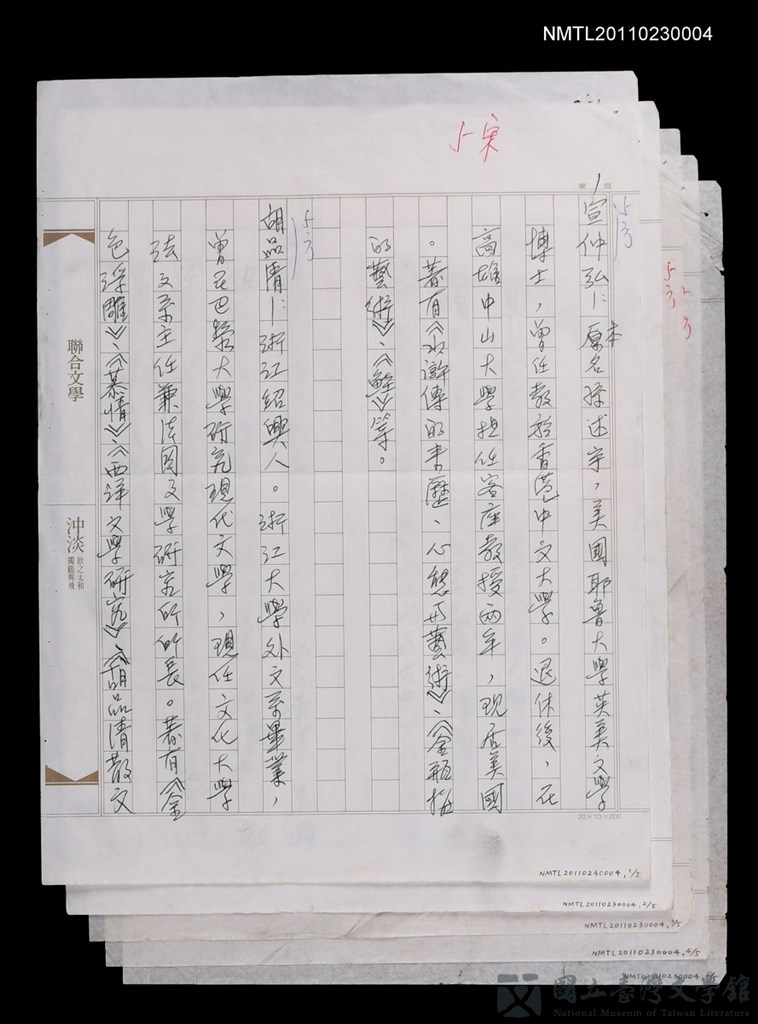 NMTL20110230004
宋
第 頁
宣仲弘:本原名孫述宇,美國耶魯大學英美文學
博士,曾任教於香港中文大學。退休後,在
高雄中山大學担任客座教授兩年,現居美國
。著有《水滸傳的來歷、心態與藝術》、《金瓶梅
的藝術》、《鰥》等。
胡品清:浙江紹興人。浙江大學外文系畢業,
曾在巴黎大學研究現代文學,現任文化大學
法文系主任兼法国文學研究所所長。著有《金
色浮雕》、《慕情》、《西洋文學研究》、《胡品清散文
聯合文學
沖淡
飲之太和
獨鶴與飛
20×10=200
NMTL20110230004, 1/5
NMTL20110230004, 2/5
NMTL20110230004, 3/5
NMTL20110230004, 4/5
NMTL20110230004, 5/5
國立臺灣文學館
National Museum of Taiwan Literature